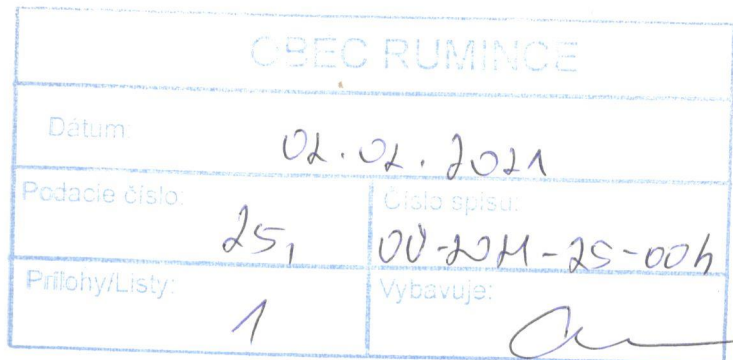 OBEC RUMINCE
Dátum: 02.02.2021
Podacie číslo: 25,
Číslo spisu: OÚ-2021-25-004
Prílohy/Listy: 1
Vybavuje: